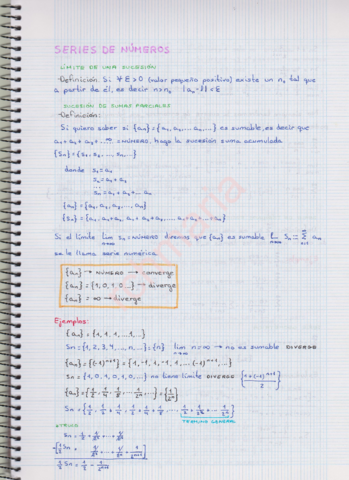 SERIES DE NÚMEROS
LÍMITE DE UNA SUCESIÓN
Definición: Si ∀ε>0 (valor pequeño positivo) existe un n₀ tal que
a partir de él, es decir n>n₀ |aₙ-l|<ε
SUCESIÓN DE SUMAS PARCIALES
Definición:
Si quiero saber si {aₙ}={a₁, a₂, ..., aₙ, ...} es sumable, es decir que
a₁+a₂+a₃+...∞ = NÚMERO, hago la sucesión suma acumulada
{Sₙ}={s₁, s₂, ..., sₙ, ...}
donde s₁=a₁
s₂=a₁+a₂
sₙ=a₁+a₂+...aₙ
{aₙ}={a₁, a₂, a₃, ..., aₙ}
{Sₙ}={a₁, a₁+a₂, a₁+a₂+a₃, ... a₁+a₂+...+aₙ}
Si el límite lim n→∞ sₙ=NÚMERO diremos que {aₙ} es sumable lim n→∞ Sₙ=Σ aₙ
se le llama serie numérica.
{aₙ} → NÚMERO → converge
{aₙ}={1,0,1,0...} → diverge
{aₙ}=∞ → diverge
Ejemplos:
{aₙ}={1,1,1,...,1,...}
Sₙ={1,2,3,4,...,n,...}={n} lim n→∞ n=∞ → no es sumable DIVERGE
{aₙ}={(-1)ⁿ⁺¹}={1,-1,1,-1,...,(-1)ⁿ⁺¹,...}
Sₙ={1,0,1,0,1,0,...} no tiene límite DIVERGE {(1+(-1)ⁿ⁺¹)/2}
{aₙ}={1/2, 1/4, 1/8, ... 1/2ⁿ, ...}={1/2ⁿ}
TÉRMINO GENERAL
Sₙ=1/2+1/2²+...+1/2ⁿ
1/2 Sₙ=1/2-1/2ⁿ⁺¹